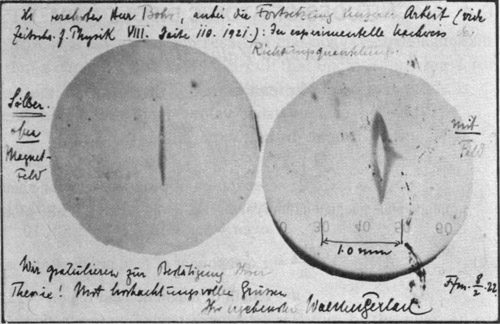 verehrter Herr Bohr, anbei die Fortsetzung unserer Arbeit (vide
Zeitschr. f. Physik VIII. Seite 110. 1921.): Der experimentelle Nachweis der
Richtungsquantelung.
Silber
ohne
Magnet-
Feld
mit
Feld
0 30 40 50 60
1.0 mm
Wir gratulieren zur Bestätigung Ihrer
Theorie! Mit hochachtungsvollen Grüssen
Ihr ergebenster Walther Gerlach
Ffm. 8/2. 22